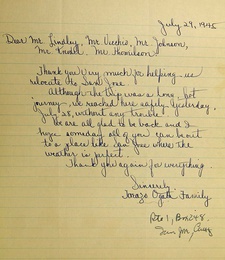 July 29, 1945
Dear Mr. Lindley, Mr. Vecchio, Mr. Johnson,
Mr. Mr. Thomason
Thank you very much for helping us
relocate to San Jose
Although the trip was a long, hot
journey, we reached here safely yesterday,
July 28, without any trouble.
We are all glad to be back and I
hope someday all of you can be out
to a place like San Jose where the
weather is perfect.
Thank you again for everything.
Sincerely,
Family
Rte 1, Box 248
San